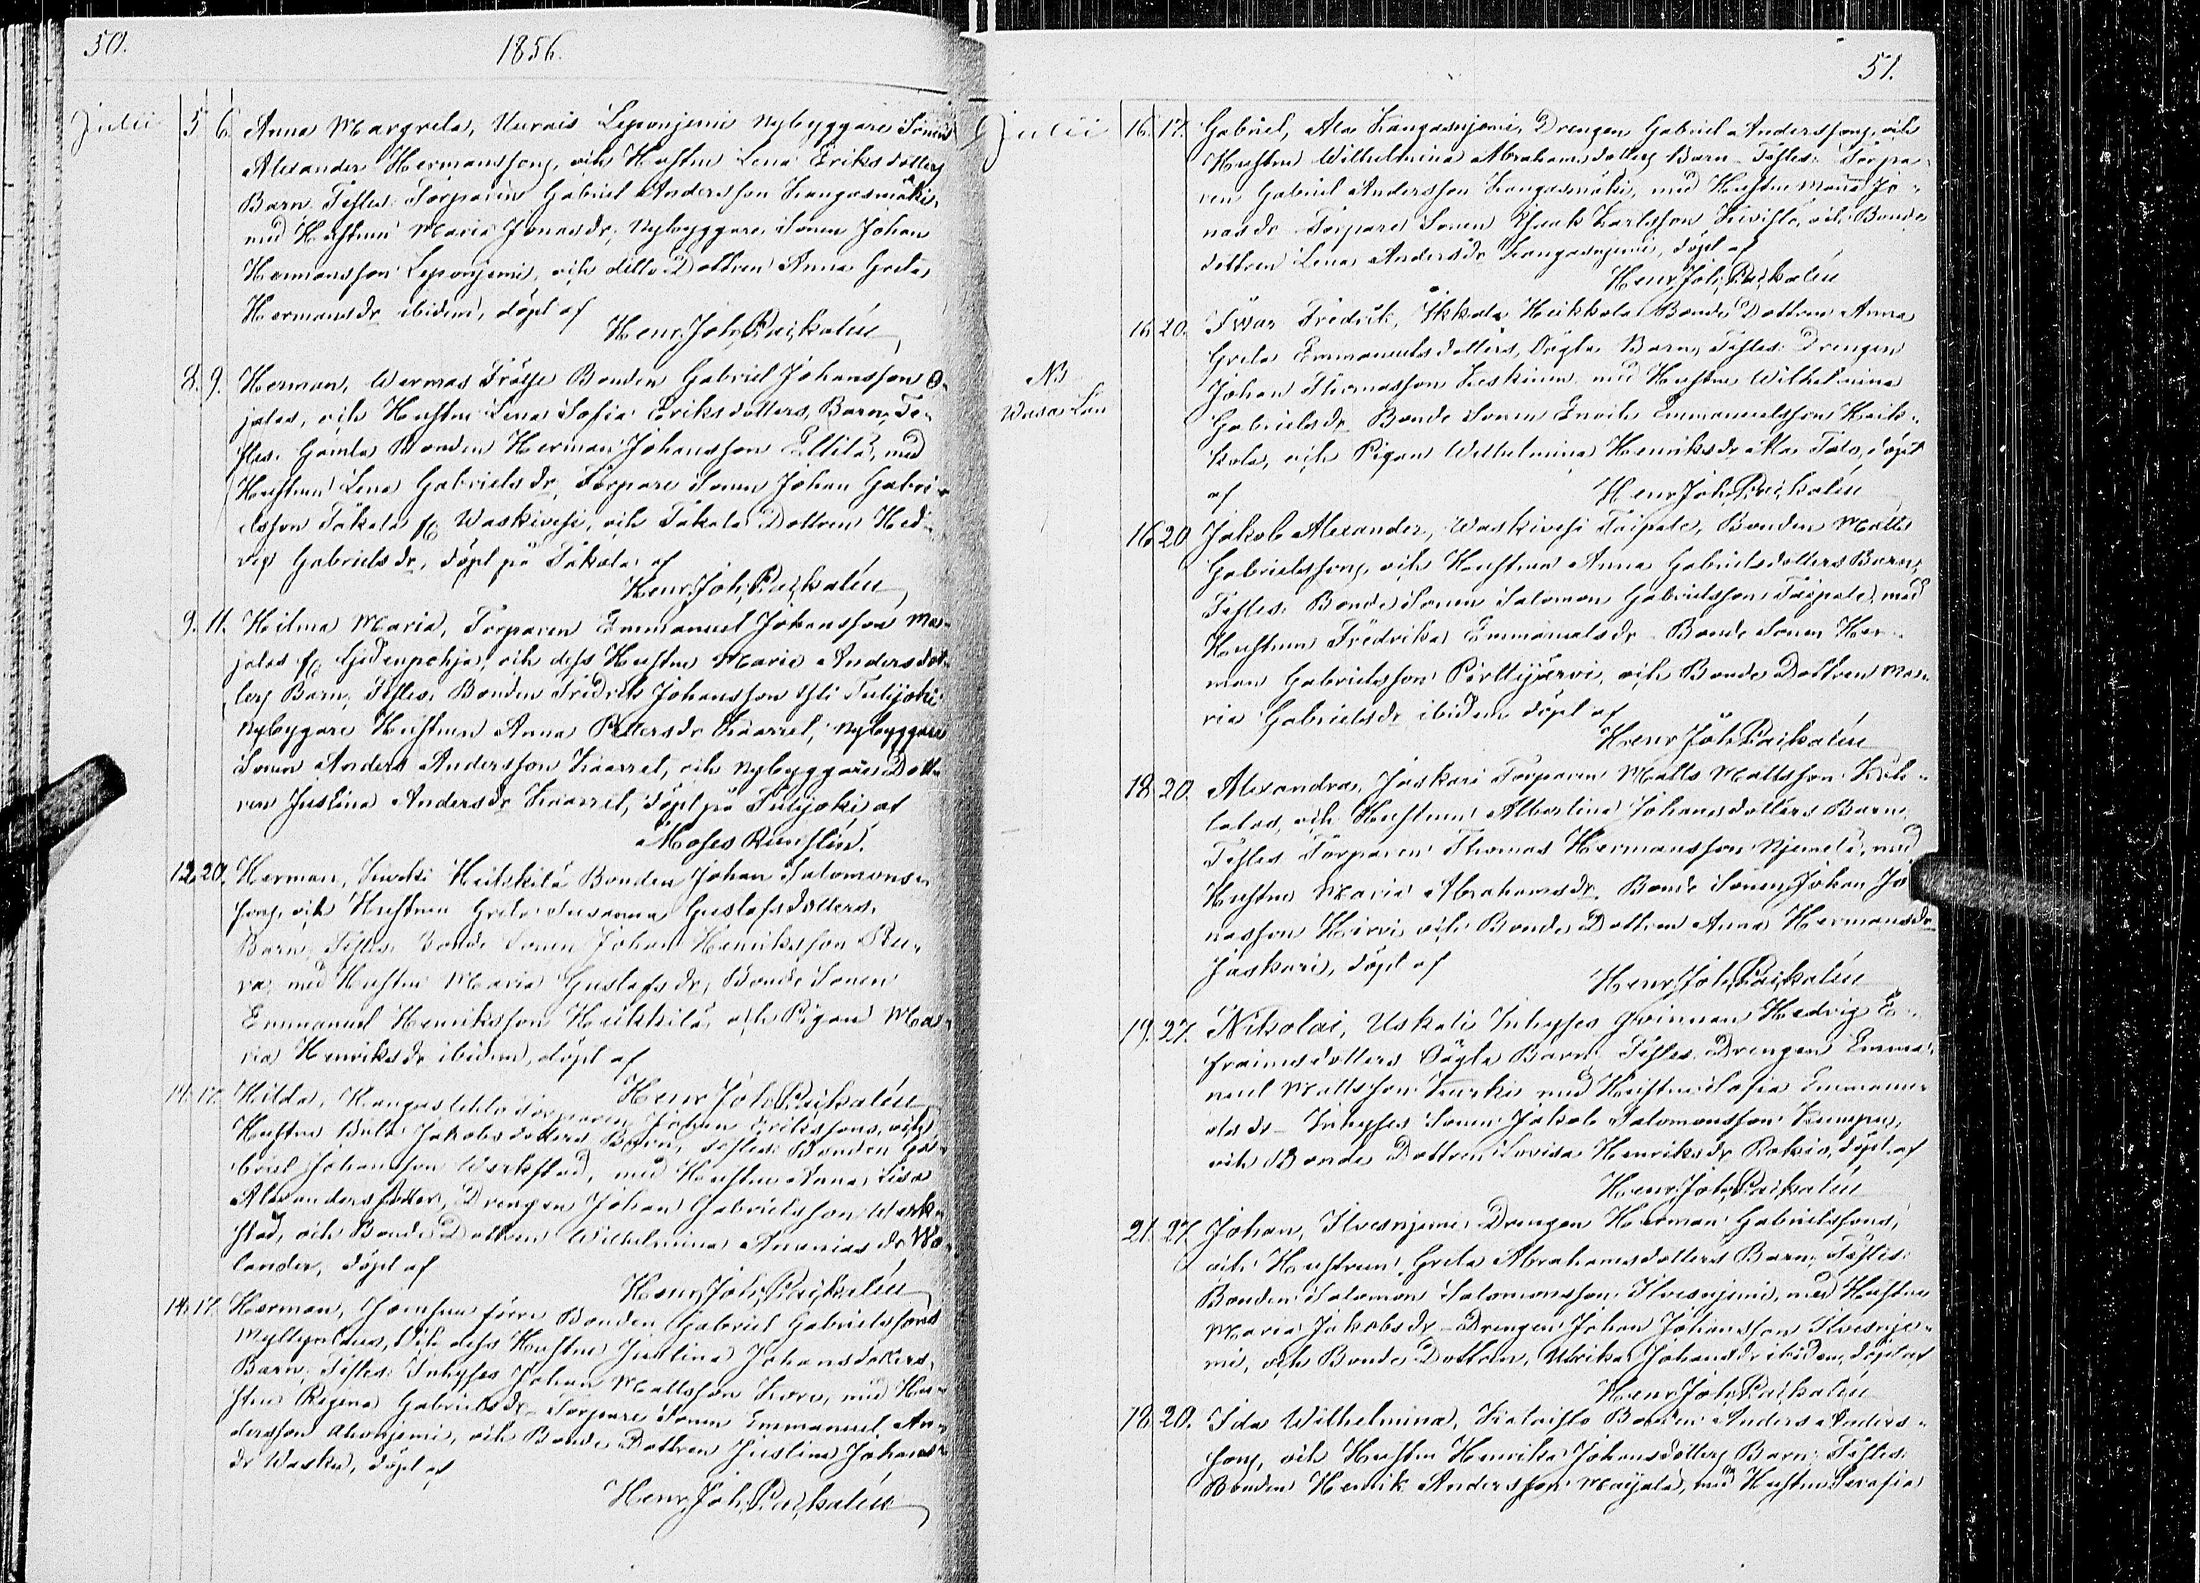 50.
1856.
Julii 5 6 Anna Margreta, Leponjemi Nybyggare Sonens
Alexander Hermanssons, och Hustrun Lena Eriksdotters
Barn. Testes: Torparen Gabriel Andersson Kangasmäki,
med Hustrun Maria Jonasdr, Nybyggare Sonen Johan
Hermansson Leponjemi, och ditto Dottren Anna Greta
Hermansdr ibidem, döpt af
Henr. Joh. Paikalén
8. 9. Herman, Wermas Frälse Bonden Gabriel Johansson O-
jalas, och Hustrun Lena Sofia Eriksdotters, Barn, Te-
stes: Gamla Bonden Herman Johansson Ellilä, med
Hustrun Lena Gabrielsdr, Torpare Sonen Johan Gabri-
elsson Takala fr Waskivesi, och Takala Dottren Hed-
vig Gabrielsdr, döpt på Takala af
Henr. Joh. Paikalén
9. 11. Hilma Maria, Torparen Emmanuel Johansson Ma-
jalas fr och dess Hustrus Maria Andersdot-
ters Barn, Testes: Bonden Fredrik Johansson Yli Tulijoki
Nybyggare Hustrun Anna Pettersdr Kaarret, Nybyggare
Sonen Anders Andersson Kaarret, och Nybyggare Dott-
ren Justina Andersdr Kaarret, döpt på Tulijoki af
Moses
12. 20. Herman, Heikkilä Bonden Johan Salomons-
sons, och Hustrun Greta Susanna Gustafsdotters,
Barn, Testes: Bonde Sonen Johan Henriksson Ru-
va, med Hustrun Maria Gustafsdr, Bonde Sonen
Emmanuel Henriksson Heikkilä, och Pigan Ma-
ria Henriksdr ibidem, döpt af
Henr. Joh. Paikalén
14. 17. Hilda, Kangaslehto Torparen Johan Erikssons, och
Hustrun Jakobsdotters Barn, Testes: Bonden Ga-
briel Johansson Werkstad, med Hustrun Anna Lisa
Alexandersdotter, Drengen Johan Gabrielsson Werk-
stad, och Bonde Dottren Wilhelmina Ananiasdr Wä-
lander, döpt af
Henr. Joh. Paikalén
14. 17. Herman, förre Bonden Gabriel Gabrielssons
och dess Hustrus Justina Johansdotters,
Barn, Testes: Inhyses Johan Mattsson med Hu-
strun Regina Gabrielsdr, Torpare Sonen Emmanuel An-
dersson Ahonjemi, och Bonde Dottren Justina Johans-
dr Waska, döpt af
Henr. Joh. Paikalén
51.
Julii 16. 17. Gabriel, Ala Kangasnjemi, Drengen Gabriel Anderssons, och
Hustrun Wilhelmina Abrahamsdotters Barn. Testes: Torpa-
ren Gabriel Andersson Kangasmäki, med Hustrun Maria Jo-
nasdr Torpare Sonen Isaak Karlsson Kivistö, och Bonde
dottren Lena Andersdr Kangasnjemi, döpt af
Henr. Joh. Paikalén
16. 20. Iwar Fredrik, Ikkala Heikkola Bonde Dottren Anna
Greta Emmanuelsdotters, Oägta Barn, Testes: Drengen
NB Johan Thomasson Keskinen med Hustrun Wilhelmina
Wasa Län Gabrielsdr Bonde Sonen Enoch Emmanuelsson Heik-
kola, och Pigan Wilhelmina Henriksdr Ala Talo, döpt
af Henr. Joh. Paikalén
16. 20. Jakob Alexander, Waskivesi Taipale, Bonden Matts
Gabrielssons, och Hustrun Anna Gabrielsdotters Barn,
Testes: Bonde Sonen Salomon Gabrielsson Taipale, med
Hustrun Fredrika Emmanuelsdr Bonde Sonen Her-
man Gabrielsson Perttijärvi, och Bonde Dottren Ma-
ria Gabrielsdr ibidem döpt af
Henr. Joh. Paikalén
18. 20. Alexandra, Jaskari Torparen Matts Mattsson
och Hustrun Albertina Johansdotters Barn
Testes Torparen Thomas Hermansson Njemelä, med
Hustrun Maria Abrahamsdr Bonde Sonen Johan Jo-
nasson Hirvi, och Bonde Dottren Anna Hermansdr
Jaskari, döpt af
Henr. Joh. Paikalén
19. 27. Nikolai, Uskali Inhyses Qvinnan Hedvig E-
fraimsdotters Oägta Barn Testes Drengen Emma-
nuel Mattsson Kurki med Hustrun Sofia Emmanu-
elsdr Inhyses Sonen Jakob Salomonsson Kumpu,
och Bonde Dottren Lovisa Henriksdr döpt af
Henr. Joh. Paikalén
21. 27. Johan, Ilvesnjemi Drengen Herman Gabrielssons,
och Hustrun Greta Abrahamsdotters Barn, Testes:
Bonden Salomon Salomonsson Ilvesnjemi, med Hustrun
Maria Jakobsdr Drengen Johan Johansson Ilvesnje-
mi, och Bonde Dottren, Ulrika Johansdr ibidem, döpt af
Henr. Joh. Paikalén
18. 20. Ida Wilhelmina, Bonden Anders Anders-
sons, och Hustrun Henrika Johansdotters Barn. Testes:
Bonden Henrik Andersson Majala, med Hustrun Serafia